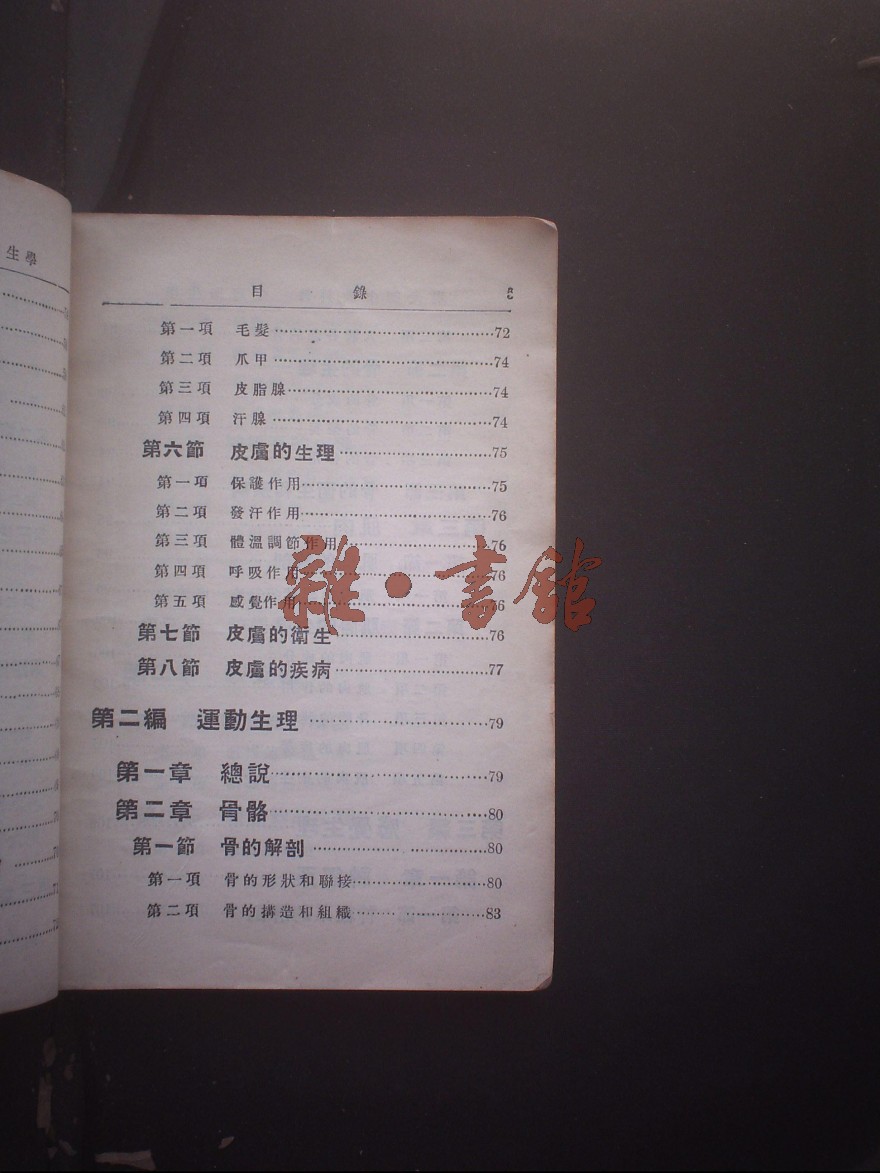 生學
目 錄
第一項 毛髮……72
第二項 爪甲……74
第三項 皮脂腺……74
第四項 汗腺……74
第六節 皮膚的生理……75
第一項 保護作用……75
第二項 發汗作用……76
第三項 體溫調節作用……76
第四項 呼吸作用……76
第五項 感覺作用……76
雜·書館
第七節 皮膚的衛生……76
第八節 皮膚的疾病……77
第二編 運動生理……79
第一章 總說……79
第二章 骨骼……80
第一節 骨的解剖……80
第一項 骨的形狀和聯接……80
第二項 骨的構造和組織……83